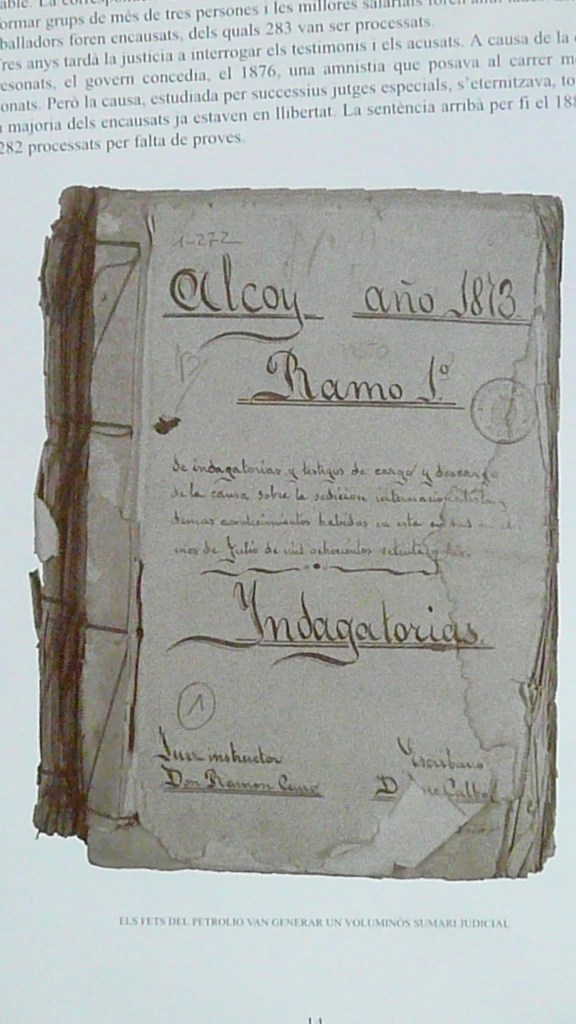 ormar grups de més de tres persones i les millores salarials foren
balladors foren encausats, dels quals 283 van ser processats.
res anys tardà la justícia a interrogar els testimonis i els acusats. A causa de la
esonats, el govern concedia, el 1876, una amnistia que posava al carrer
onats. Però la causa, estudiada per successius jutges especials, s'eternitzava,
majoria dels encausats ja estaven en llibertat. La sentència arribà per fi el
282 processats per falta de proves.
1-272
Alcoy año 1873
Ramo 1º
de indagatorias y testigos de cargo y descargo
de la causa sobre la sedicion internacionalista y
demas acontecimientos habidos en esta
mes de Julio de mil ochocientos setenta y
Indagatorias.
1
Juez instructor Escribano
Don Ramon D
ELS FETS DEL PETROLIO VAN GENERAR UN VOLUMINÓS SUMARI JUDICIAL
14